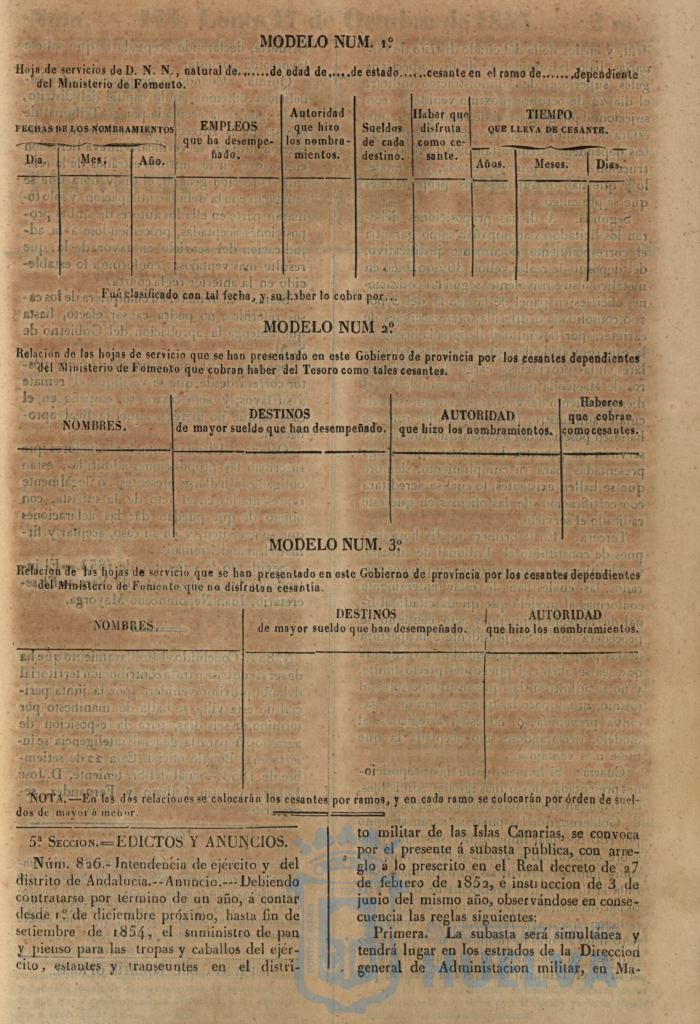 MODELO NUM. 1º
Hoja de servicios de D. N. N., natural de.......de edad de.....de estado......cesante en el ramo de.......dependiente
del Ministerio de Fomento.
FECHAS DE LOS NOMBRAMIENTOS
Dia. Mes. Año.
EMPLEOS
que ha desempe-
ñado.
Autoridad
que hizo
los nombra-
mientos.
Sueldos
de cada
destino.
Haber que
disfruta
como ce-
sante.
TIEMPO
QUE LLEVA DE CESANTE.
Años. Meses. Dias.
Fué clasificado con tal fecha, y su haber lo cobra por...
MODELO NUM 2º
Relacion de las hojas de servicio que se han presentado en este Gobierno de provincia por los cesantes dependientes
del Ministerio de Fomento que cobran haber del Tesoro como tales cesantes.
NOMBRES.
DESTINOS
de mayor sueldo que han desempeñado.
AUTORIDAD
que hizo los nombramientos.
Haberes
que cobran
como cesantes.
MODELO NUM. 3º
Relacion de las hojas de servicio que se han presentado en este Gobierno de provincia por los cesantes dependientes
del Ministerio de Fomento que no disfrutan cesantía.
NOMBRES.
DESTINOS
de mayor sueldo que han desempeñado.
AUTORIDAD
que hizo los nombramientos.
NOTA.—En las dos relaciones se colocarán los cesantes por ramos, y en cada ramo se colocarán por órden de suel-
dos de mayor á menor.
5ª SECCION.=EDICTOS Y ANUNCIOS.
Núm. 826.-Intendencia de ejército y del
distrito de Andalucia.--Anuncio.---Debiendo
contratarse por término de un año, á contar
desde 1º de diciembre próximo, hasta fin de
setiembre de 1854, el suministro de pan
y pienso para las tropas y caballos del ejér-
cito, estantes y transeuntes en el distri-
to militar de las Islas Canarias, se convoca
por el presente á subasta pública, con arre-
glo á lo prescrito en el Real decreto de 27
de febrero de 1852, é instruccion de 3 de
junio del mismo año, observándose en conse-
cuencia las reglas siguientes:
Primera. La subasta será simultánea y
tendrá lugar en los estrados de la Direccion
general de Administacion militar, en Ma-
HUELVA